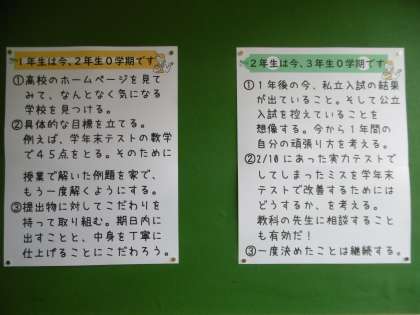 1年生は今、2年生0学期です
①高校のホームページを見て
みて、なんとなく気になる
学校を見つける。
②具体的な目標を立てる。
例えば、学年末テストの数学
で45点をとる。そのために
授業で解いた例題を家で、
もう一度解くようにする。
③提出物に対してこだわりを
持って取り組む。期日内に
出すことと、中身を丁寧に
仕上げることにこだわろう。
2年生は今、3年生0学期です
①1年後の今、私立入試の結果
が出ていること。そして公立
入試を控えていることを
想像する。今から1年間の
自分の頑張り方を考える。
②2/10にあった実力テストで
してしまったミスを学年末
テストで改善するためには
どうするか、を考える。
教科の先生に相談すること
も有効だ！
③一度決めたことは継続する。